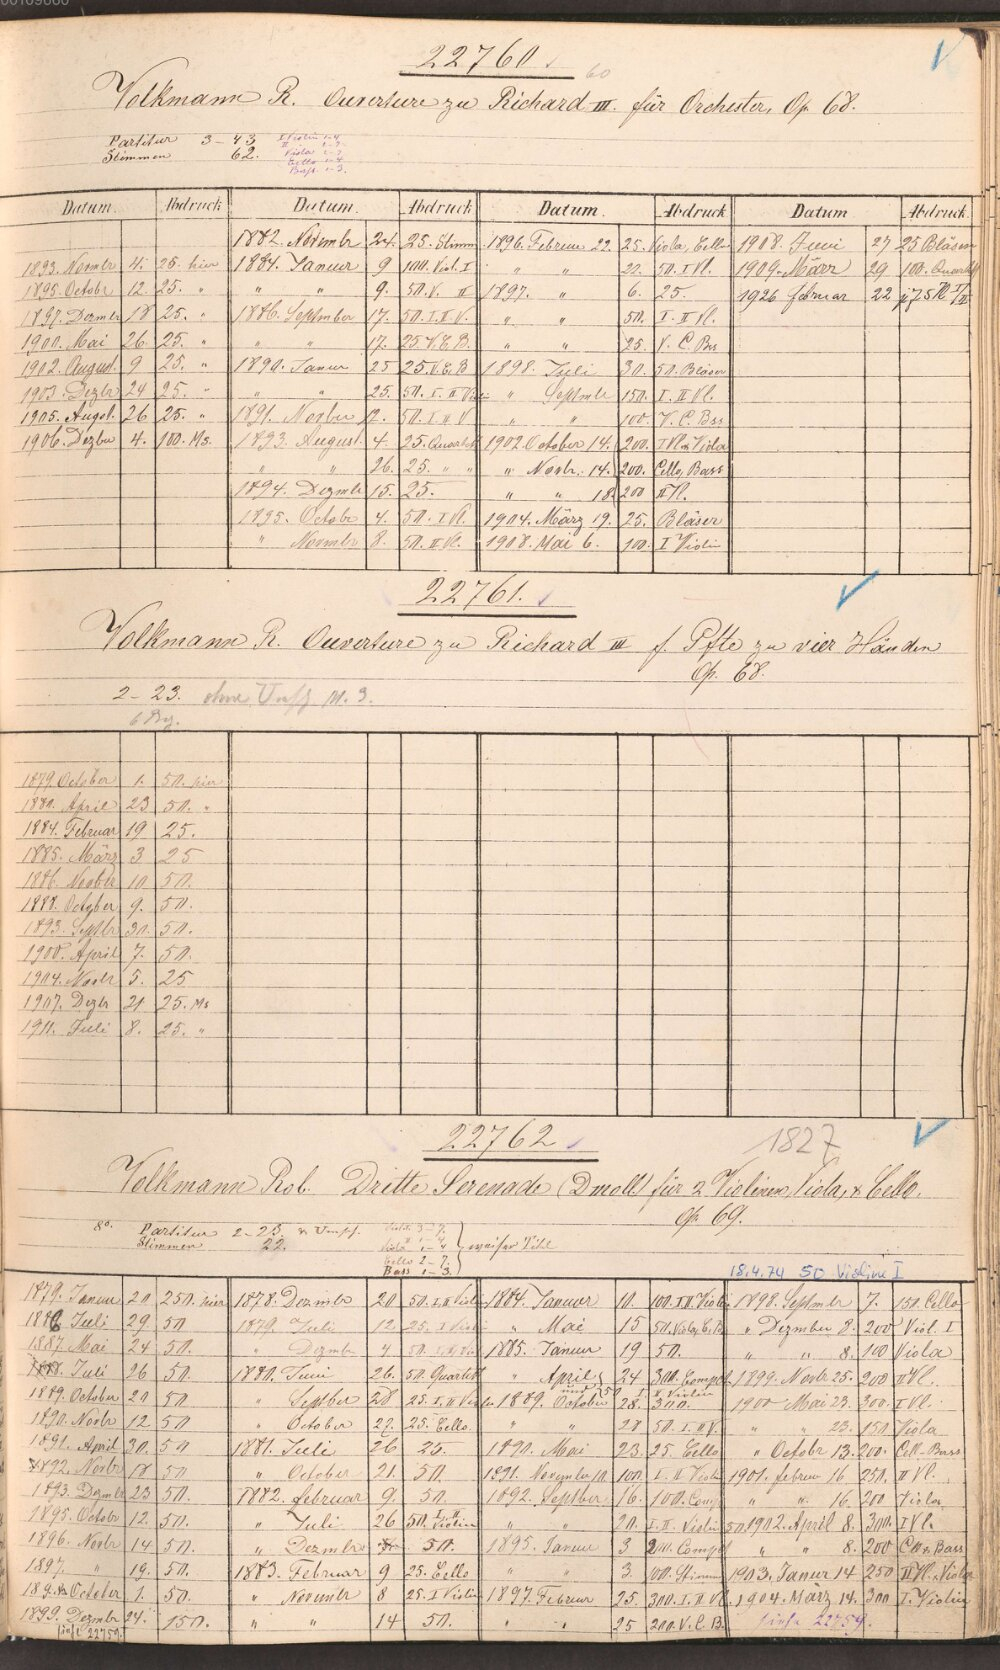 22760
60
Volkmann R. Ouverture zu Richard III. für Orchester, Op. 68.
Partitur 3-43
Stimmen 62.
I Violin 1-4
Viola 1-3
Cello 1-4
Bass 1-3.
Datum. Abdruck Datum. Abdruck Datum. Abdruck Datum Abdruck
1882. Novembr 24. 25. Stimm 1896. Februar 22. 25. Viola, Cello 1908. Juni 27 25 Bläser
1893. Novmbr 4. 25. hier 1884. Januar 9 100. Viol. I " " 22. 50. I Vl. 1909. März 29 100. Quartett
1895. Octobr 12. 25. " " " 9. 50. V. II 1897. " 6. 25. 1926 Februar 22
1897. Dezmbr 18 25. " 1886. Septmber 17. 50. I. II V. " " 50. I. II Vl.
1900. Mai 26. 25. " " " 17. 25 V. C. B. " " 25. V. C. Bss
1902. August 9 25. " 1890. Januar 25 25. V. C. B 1898. Juli 30. 50. Bläser
1903. Dezbr 24 25. " " " 25. 50. I. II " Septmbr 150. I. II Vl.
1905. Augst. 26 25. " 1891. Novber 12. 50. I II V " " 100. V. C. Bss
1906. Dezber 4. 100. Ms. 1893. August 4. 25. Quartett 1902. October 14. 200. I Vl. Viola
" " 26. 25. " " " Novbr. 14. 200. Cello, Bass
1894. Dezmbr 15. 25. " " 18. 200 II Vl.
1895. Octobr 4. 50. I Vl. 1904. März 19. 25. Bläser
" Novmbr 8. 50. II Vl. 1908. Mai 6. 100. I Violin
22761.
Volkmann R. Ouverture zu Richard III f. Pfte zu vier Händen
Op. 68.
2-23. ohne Umschl. M. 3.
1879. October 1. 50. hier
1881. April 23 50. "
1884. Februar 19 25.
1885. März 3 25
1886. Novber 10 50.
1888. October 9. 50.
1893. Septbr 30. 50.
1900. April 7. 50.
1904. Novbr 5. 25
1907. Dezbr 21 25. Ms
1911. Juli 8. 25. "
22762
1827
Volkmann Rob. Dritte Serenade (Dmoll) für 2 Violinen, Viola, & Cello.
Op. 69.
8°. Partitur 2-23.
Stimmen 22.
Cello 2-7.
Bass 1-3.
weisser Titel
18.4.74 50 Violine I
1879. Januar 20 250. hier 1878. Dezmbr 20 50. I. II Violin 1884. Januar 10. 100. I II Violin 1898. Septmbr 7. 150. Cello
1886 Juli 29 50 1879. Juli 12 25. I Violin " Mai 15 50. Viola, C. B. " Dezmber 8. 200 Viol. I
1887. Mai 24 50. " Dezmbr 4 50. 1885. Januar 19 50. " " 8. 100 Viola
1888. Juli 26 50. 1880. Juni 26. 50. Quartett " April 24 300. Complt 1899. Novbr 25. 200 II Vl.
1889. October 20 50 " Septber 28 25. I. II Violin 1889. October 28. 300. I II Violin 1900 Mai 23. 300. I Vl.
1890. Novbr 12 50 " October 27. 25. Cello. " " 28 50. I. II V. " " 23. 150 Viola
1891. April 30. 50 1881. Juli 26 25. 1890. Mai 23. 25. Cello " Octobr 13. 200. Cell-Bass
1892. Novbr 18 50 " October 21. 50. 1891. November 10 100. I. II Violin 1901. Februar 16 250. II Vl.
1893. Dezmbr 23 50. 1882. Februar 9. 50. 1892. Septber 16. 100. Comp. " " 16. 200 Viola
1895. Octobr 12. 50. " Juli 26 50. I. II Violin " " 20. I. II. Violin 50. 1902. April 8. 300. I Vl.
1896. Novbr 14 50. " Dezmbr 50. 1895. Januar 3 200. Complt " " 8. 200 Cello Bass
1897. " 19. 50. 1883. Februar 9 25. Cello " " 3. 100. Stimm 1903. Januar 14 250 II Vl. Viola
October 1. 50. " Novmbr 8 25. I Violin 1897. Februar 25. 300. I. II Vl 1904. März 14. 300 I. Violin
1899. Dezmbr 24. 150. " " 14 50. " " 25 200. V. C. B. siehe 22759.
siehe 22759.